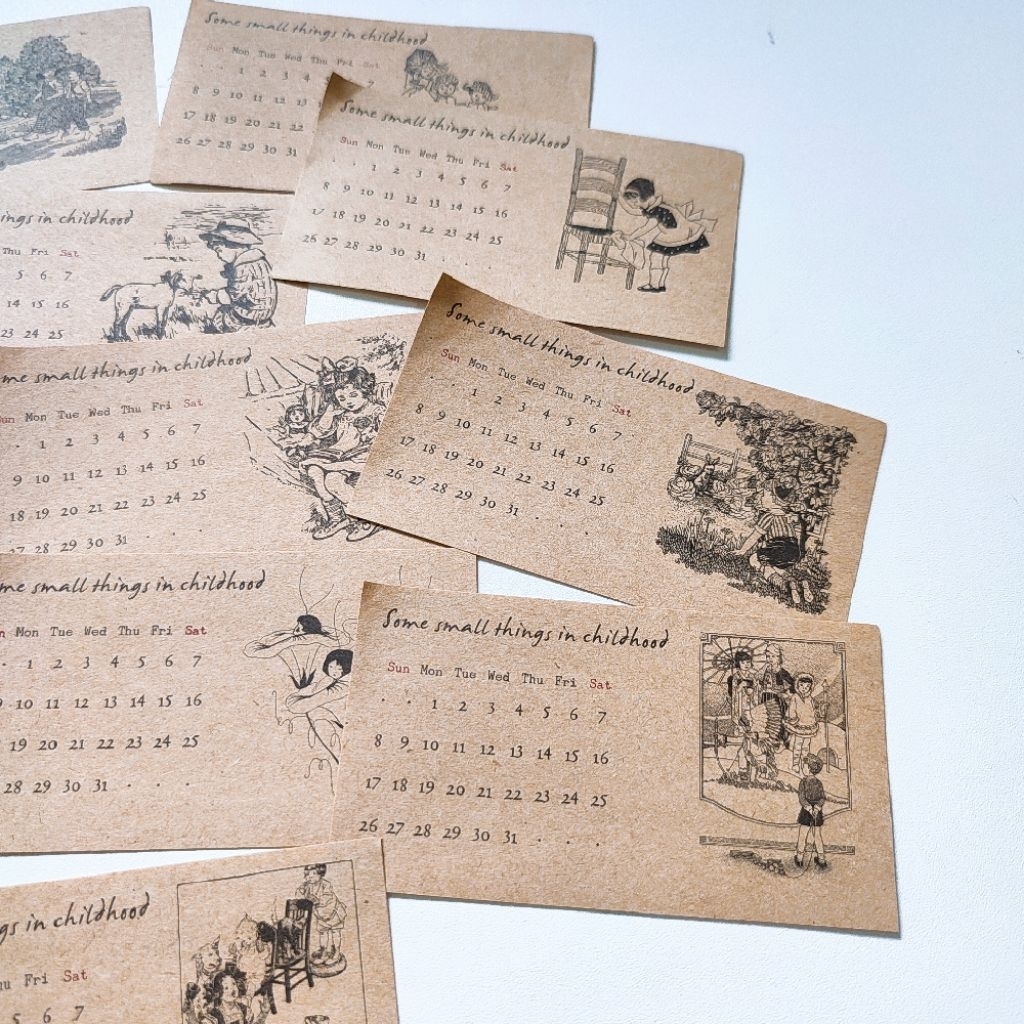 Some small things in childhood
Sun Mon Tue Wed
· · 1 2 3 4 7
8 9 10 11 12 13
17 18 19 20 21 22
26 27 28 29 30 31
Some small things in childhood
Sun Mon Tue Wed Thu Fri Sat
· · 1 2 3 4 5 6 7
8 9 10 11 12 13 14 15 16
18 19 20 21 22 23 24 25
26 27 28 29 30 31 · · ·
in childhood
Thu Fri Sat
5 6 7
14 15 16
23 24 25
small things in childhood
Mon Tue Wed Thu Fri Sat
· 1 2 3 4 5 6 7
9 10 11 12 13 14 15 16
18 19 20 21 22 23 24 25
28 29 30 31 · · ·
Some small things in childhood
Sun Mon Tue Wed Thu Fri Sat
· · 1 2 3 4 5 6 7
8 9 10 11 12 13 14 15 16
17 18 19 20 21 22 23 24 25
26 27 28 29 30 31 · · ·
small things in childhood
Mon Tue Wed Thu Fri Sat
· 1 2 3 4 5 6 7
10 11 12 13 14 15 16
19 20 21 22 23 24 25
28 29 30 31 · · ·
Some small things in childhood
Sun Mon Tue Wed Thu Fri Sat
· · 1 2 3 4 5 6 7
8 9 10 11 12 13 14 15 16
17 18 19 20 21 22 23 24 25
26 27 28 29 30 31 · · ·
in childhood
Fri Sat
6 7